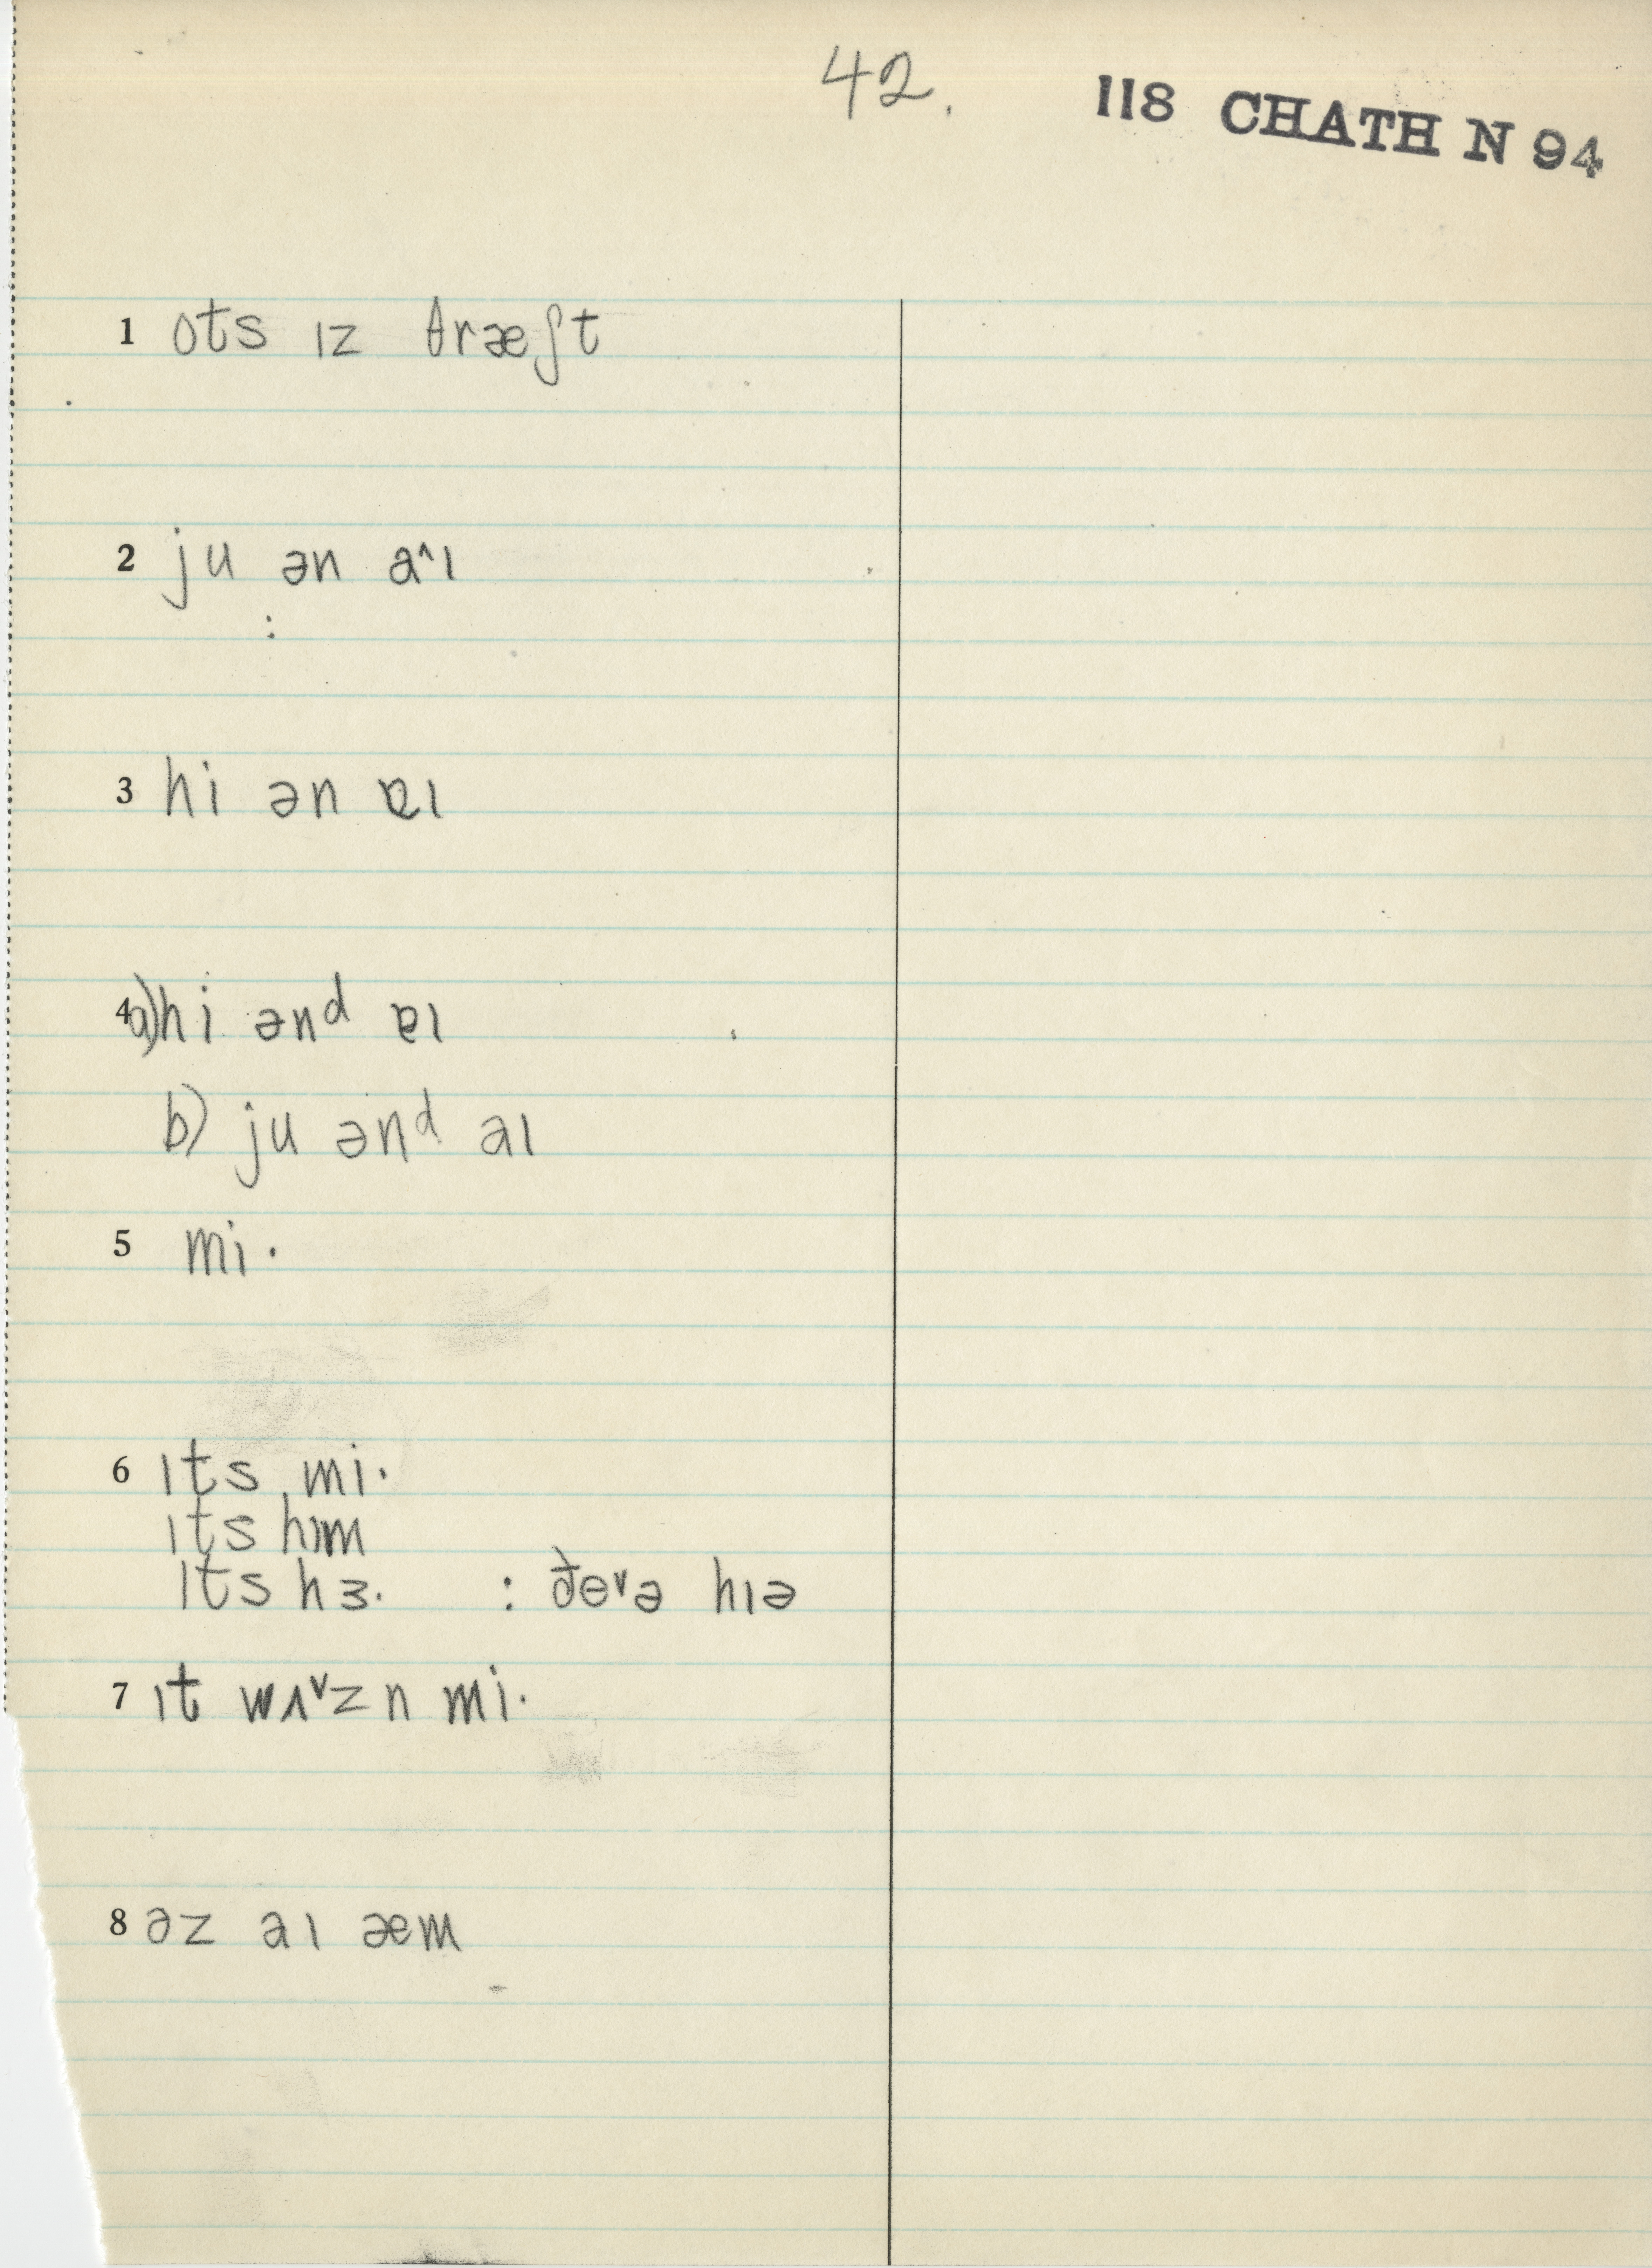 42.
118 CHATH N 94
1 ots ɪz θræʃt
2 ju ən a˄ɪ
:
3 hi ən ɐɪ
4 a) hi ənᵈ ɐɪ
b) ju ənᵈ aɪ
5 mi·
6 ɪts mi·
ɪts hɪm
ɪts hɜ· : ðe˅ə hɪə
7 ɪt wʌ˅zn mi·
8 əz aɪ æm